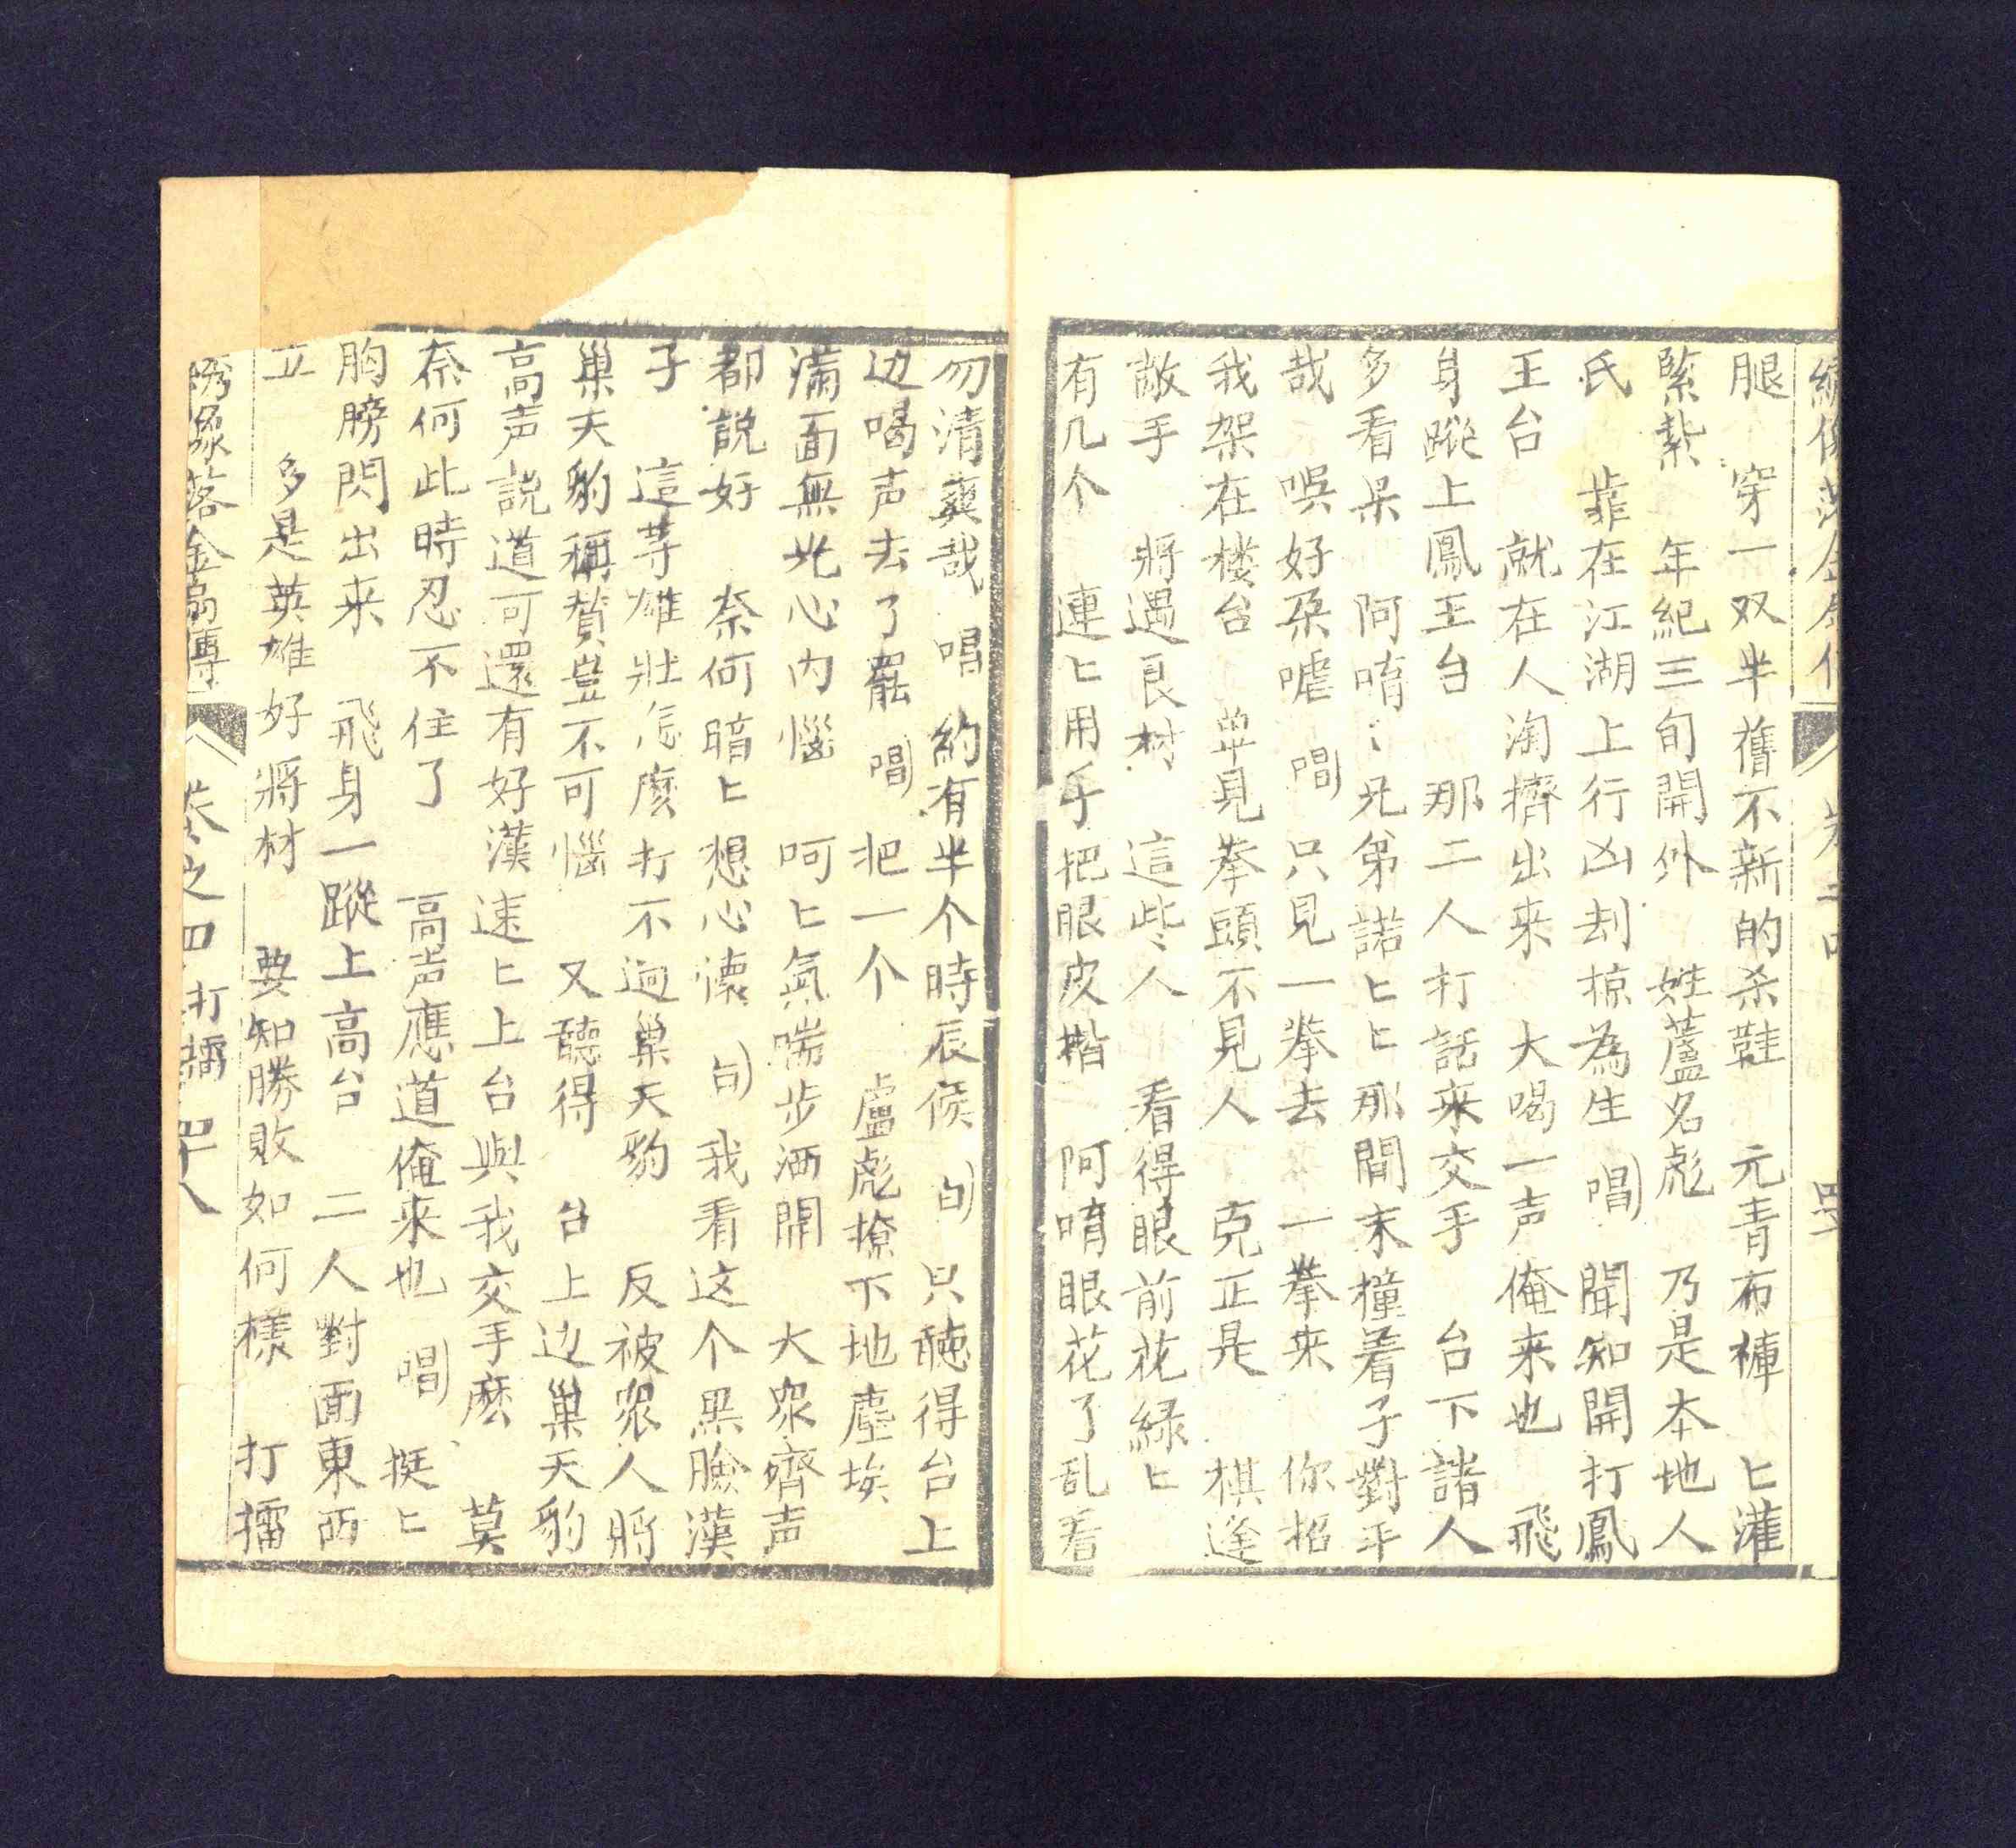 腿　穿一双半舊不新的杀鞋　元青布褲　匕灌
緊紮　年紀三旬開外　姓蘆名彪　乃是本地人
氏　靠在江湖上行凶刦掠為生　唱　聞知開打鳳
王台　就在人淘擠出来　大喝一声俺来也　飛
身蹤上鳳王台　那二人打話来交手　台下諸人
多看呆　阿唷〻兄弟諾匕匕那間末撞着子對手
哉　唄好朶嘘　唱　只見一拳去　一拳来　你招
我架在楼台　単見拳頭不見人　克正是　棋逢
敵手　將遇良材　這些人　看得眼前花緑匕
有几个　連匕用手把眼皮揩　阿唷眼花了乱看
勿清爽哉　唱　約有半个時辰候　白　只聽得台上
边喝声去了罷　唱　把一个　盧彪撩下地塵埃
滿面無光心内惱　呵匕氣喘步洒開　大衆齊声
都説好　奈何暗匕想心懷　白　我看这个黑臉漢
子　這等雄壯怎麽打不過巢天豹　反被衆人將
巢天豹稱賛豈不可惱　又聽得　台上边巢天豹
高声説道可還有好漢速匕上台與我交手麽　莫
奈何此時忍不住了　高声應道俺来也　唱　挺匕
胸膀閃出来　飛身一蹤上高台　二人對面東西
立　多是英雄好將材　要知勝敗如何樣　打擂
綉像落金扇傳　卷之四　打擂　四十八